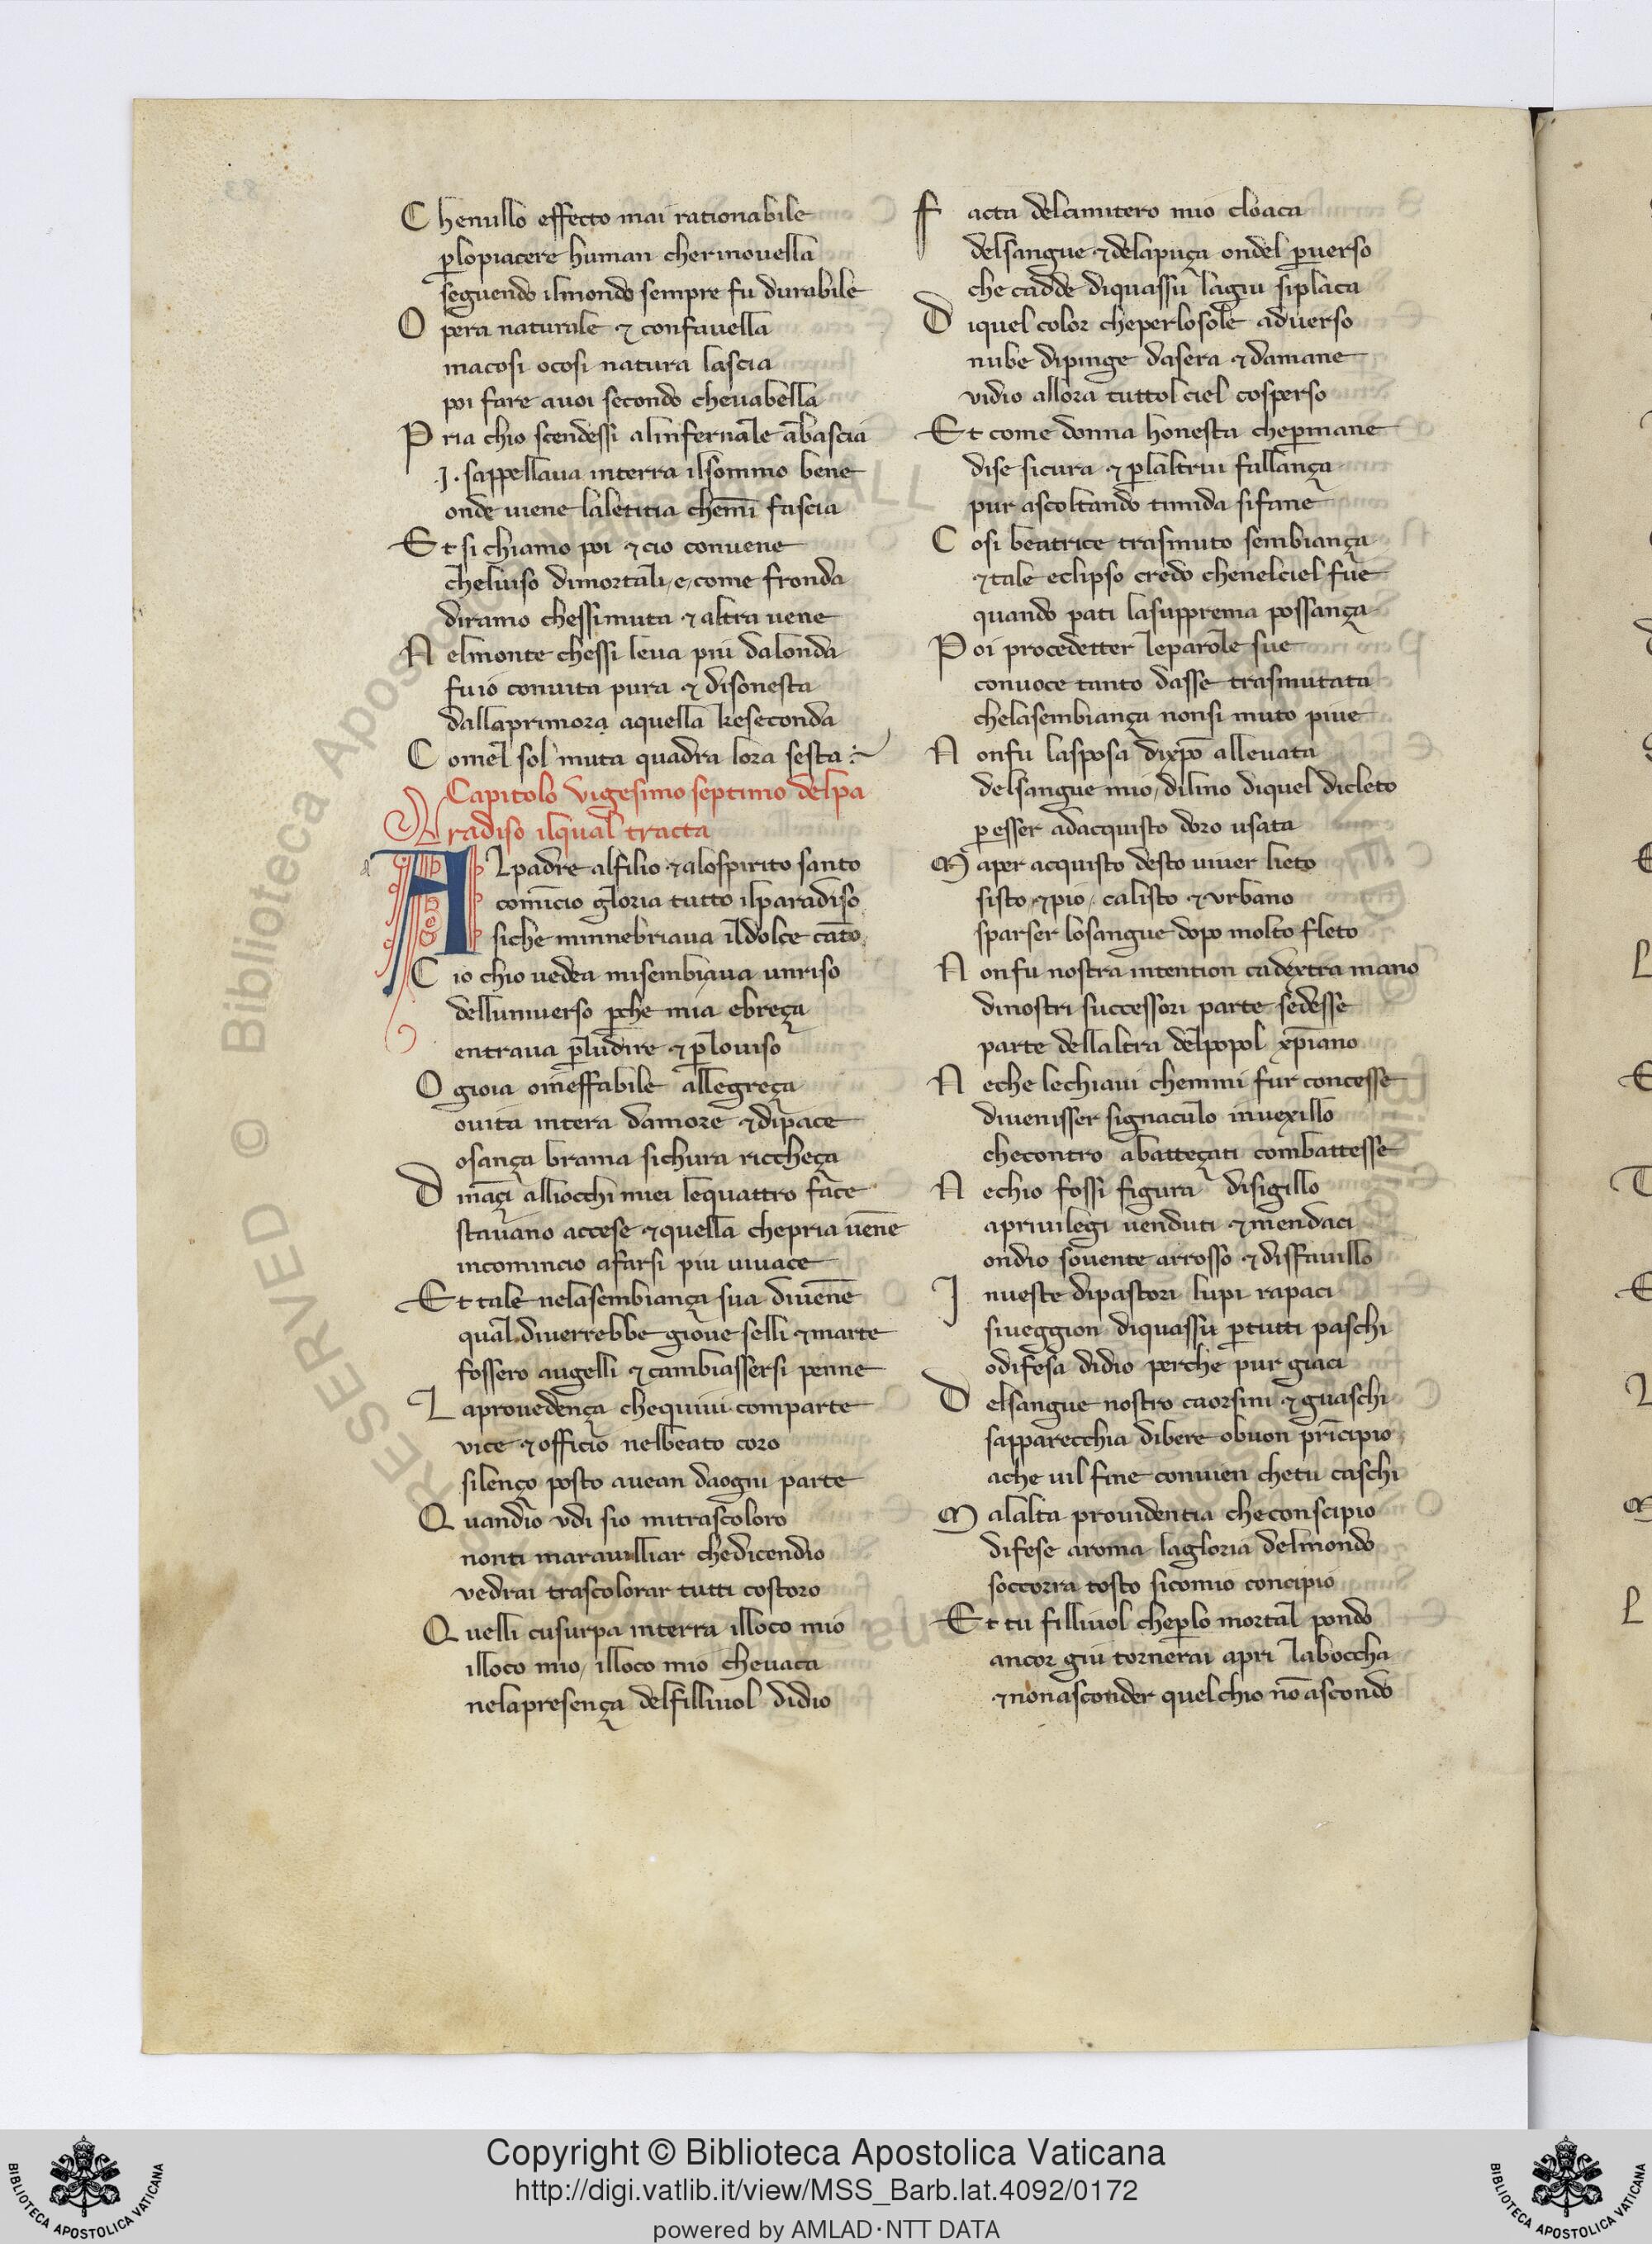 C henullo effecto mai rationabile
ꝑlopiacere human cherinouella
seguendo ilmondo sempre fu durabile
O pera naturale ⁊ confauella
macosi ocosi natura lascia
poi fare auoi secondo cheuabella
P ria chio scendessi alinfernale ābascia
.J. sappellaua interra ilsommo bene
onde uiene laletitia chemī fascia
E t si chiamo poi ⁊ cio conuene
cheluiso dimortali e come fronda
diramo chessimuta ⁊ altra uene
N elmonte chessi leua piu dalonda
fuio conuita pura ⁊ disonesta
dallaprimora aquella keseconda
C omel sol muta quadra lora sesta
Capitolo vigesimo septimo delpa
radiso ilqual tracta
A lpadre alfilio ⁊ alospirito santo
comīcio gloria tutto ilparadiso
siche minnebriaua ildolçe cāto
C io chio uedea misembiaua unriso
delluniuerso ꝑche mia ebreça
entraua ꝑludire ⁊ ꝑlouiso
O gioia oineffabile allegreça
ouita intera damore ⁊ dipace
osança brama sichura riccheça
D ināçi alliocchi miei lequattro face
stauano accese ⁊ quella chepria uēne
incomincio afarsi piu uiuace
E t tale nelasembiança sua diuēne
qual diuerrebbe gioue selli ⁊ marte
fossero augelli ⁊ cambiassersi penne
L aprouedença chequiui comparte
vice ⁊ officio nelbeato coro
silenço posto auean daogni parte
Q uandio vdi sio mitrascoloro
nonti marauilliar chedicendio
vedrai trascolorar tutti costoro
Q uelli cusurpa interra illoco mio
illoco mio illoco mio cheuaca
nelapresença delfilliuol didio
F acta delcimitero mio cloaca
delsangue ⁊ delapuça ondel ꝑuerso
che cadde diquassu lagiu siplaca
D iquel color cheperlosole aduerso
nube dipinge dasera ⁊ damane
vidio allora tuttol ciel cosperso
E t come donna honesta cheꝑmane
dise sicura ⁊ ꝑlaltrui fallança
pur ascoltando timida sifane
C osi beatrice trasmuto sembiança
⁊ tale eclipso credo chenelciel fue
quando pati lasupprema possança
P oi procedetter leparole sue
conuoce tanto dasse trasmutata
chelasembiança nonsi muto piue
N onfu lasposa dixp̄o alleuata
delsangue mio dilino diquel dicleto
ꝑ esser adacquisto doro usata
M aper acquisto desto uiuer lieto
sisto ⁊ pio calisto ⁊ vrbano
sparser losangue dopo molto fleto
N onfu nostra intention cadextra mano
dinostri successori parte sedesse
parte dellaltra delpopol xp̄iano
N eche lechiaui chemmi fur concesse
diuenisser signaculo inuexillo
checontro abatteçati combattesse
N echio fossi figura disigillo
apriuilegi uenduti ⁊ mendaci
ondio souente arrosso ⁊ disfauillo
I nueste dipastori lupi rapaci
siueggion diquassu ꝑtutti paschi
odifesa didio perche pur giaci
D elsangue nostro caorsini ⁊ guaschi
sapparecchia dibere obuon prīcipio
ache uil fine conuien chetu caschi
M alalta prouidentia checonscipio
difese aroma lagloria delmondo
soccorra tosto sicomio concipio
E t tu filliuol cheꝑlo mortal pondo
ancor giu tornerai apri labocha
⁊ nonasconder quelchio nō ascondo
Copyright © Biblioteca Apostolica Vaticana
http://digi.vatlib.it/view/MSS_Barb.lat.4092/0172
powered by AMLAD·NTT DATA
BIBLIOTECA APOSTOLICA VATICANA
BIBLIOTECA APOSTOLICA VATICANA